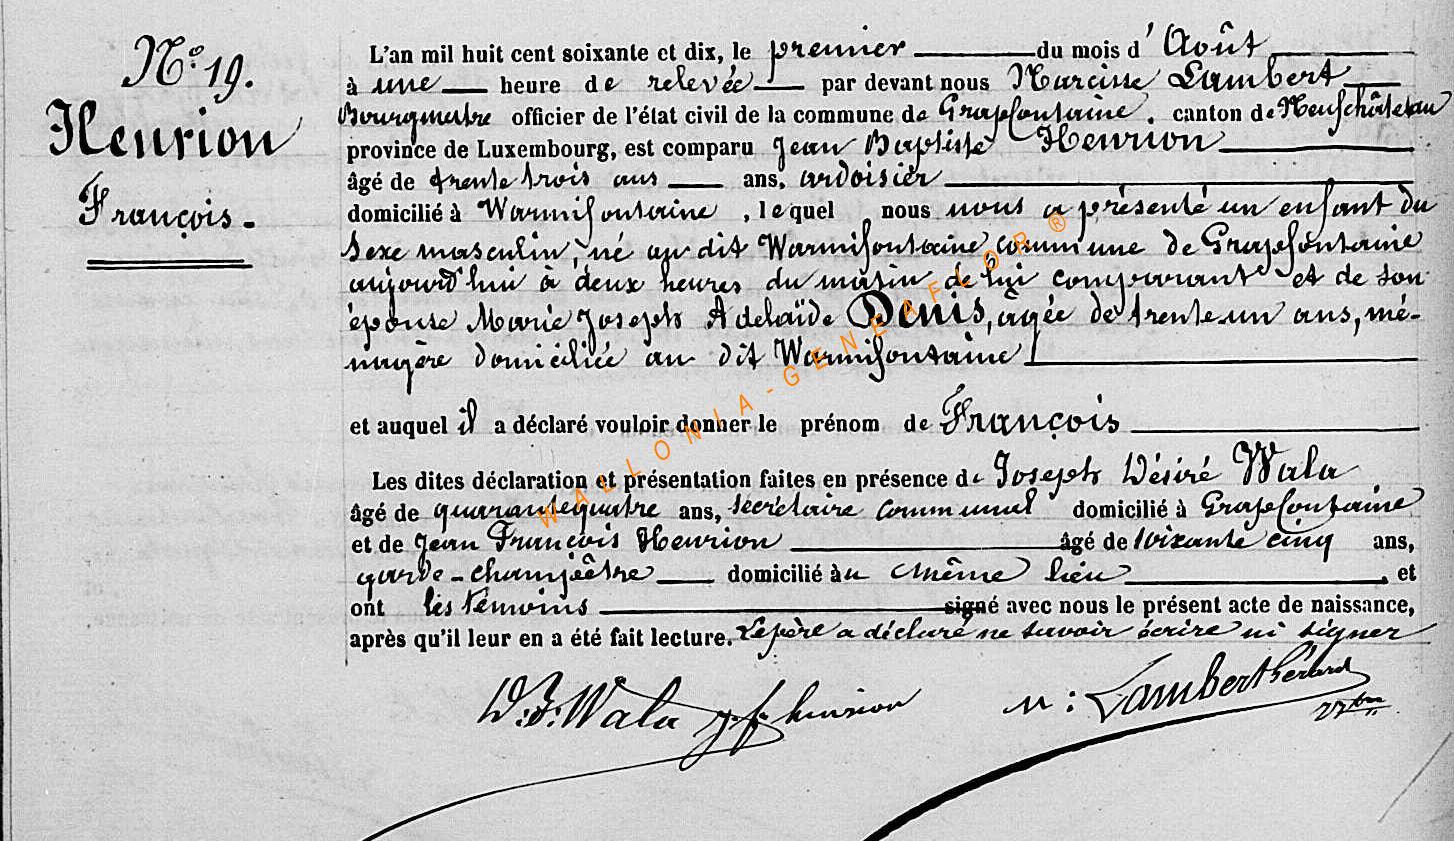 N° 19.
Henrion
François.
L'an mil huit cent soixante et dix, le premier du mois d'Août
à une heure de relevée par devant nous Narcisse Lambert
Bourgmestre officier de l'état civil de la commune de Grapfontaine. canton de Neufchâteau
province de Luxembourg, est comparu Jean Baptiste Henrion
âgé de trente trois ans ans, ardoisier
domicilié à Warmifontaine, lequel nous nous a présenté un enfant du
sexe masculin, né au dit Warmifontaine commune de Grapfontaine
aujourd'hui à deux heures du matin de lui comparant et de son
épouse Marie Joseph Adelaïde Denis, âgée de trente un ans, mé-
nagère domiciliée au dit Warmifontaine
et auquel il a déclaré vouloir donner le prénom de François
Les dites déclaration et présentation faites en présence de Joseph Désiré Wala
âgé de quarante quatre ans, secrétaire communal domicilié à Grapfontaine
et de Jean François Henrion âgé de soixante cinq ans,
garde-champêtre domicilié au même lieu, et
ont les témoins signé avec nous le présent acte de naissance,
après qu'il leur en a été fait lecture. Le père a déclaré ne savoir écrire ni signer
D.J. Wala J. f. henrion N: Lambert Gérard
WALLONIA-GENEAFLOR ®